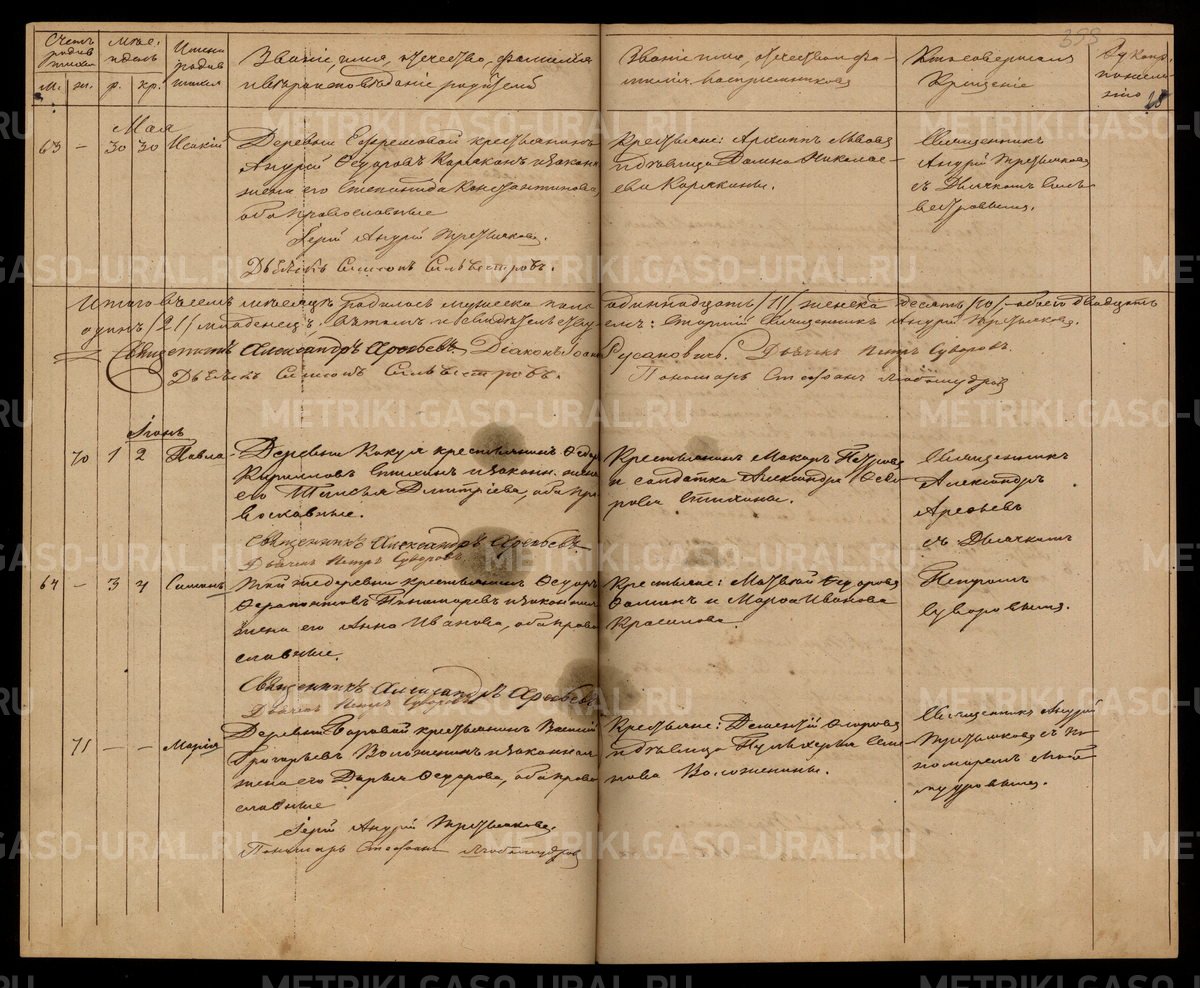 398
Счетъ родившихся
Мѣсяцъ и день
Имена родившихся
Званіе, имя, отчество, фамилія
и вѣроисповѣданіе родителей
Званіе имя, отчество и фа-
милія воспріемниковъ
Кто совершалъ
Крещеніе
м. ж. р. кр.
Мая
63 — 30 30 Исакій
Деревни Ефремовой крестьянинъ
Андрей Ѳедоровъ Карякинъ и закон
жена его Степанида Константинова,
оба православные
Іерей Андрей Третьяковъ.
Дьячекъ Симеонъ Сильвестровъ.
Крестьяне: Архипъ Львовъ
и дѣвица Домна Николае-
ева Карякины.
Священникъ
Андрей Третьяковъ
съ Дьячкомъ Силь-
вестровымъ.
Итого въ семъ мѣсяцѣ родилось мужеска пола одиннадцать /11/ женска десять /10/ - обоего двадцать
одинъ /21/ младенецъ. Въ томъ и свидѣтельствуемъ: Старшій Священникъ Андрей Третьяковъ.
Священникъ Александръ Арефьевъ. Діаконъ Іоаннъ Русановичъ. Дьячекъ Петръ Суворовъ.
Дьячекъ Симеонъ Сильвестровъ. Пономарь Стефанъ Любомудровъ
Іюнь
70 1 2 Павла
Деревни Кокуя крестьянинъ Ѳедоръ
Кирилловъ Стихинъ и законн. жена
его Таисья Дмитріева, оба пра
вославные.
Священникъ Александръ Арефьевъ
Дьячекъ Петръ Суворовъ
Крестьянинъ Макаръ Петровъ
и солдатка Александра Ѳедо-
рова Стихины.
Священникъ
Александръ
Арефьевъ
съ Дьячкомъ
64 — 3 4 Симеонъ
Той же деревни крестьянинъ Ѳедоръ
Ферапонтовъ Пономаревъ и законная
жена его Анна Иванова, оба право
славные.
Священникъ Александръ Арефьевъ
Дьячекъ Петръ Суворовъ
Крестьяне: Матвей Ѳедоровъ
и Марѳа Иванова
Петромъ
Суворовымъ.
71 — — Марія
Деревни Боровой крестьянинъ Василій
Григорьевъ Воложенинъ и законная
жена его Дарья Ѳедорова, оба право
славные
Іерей Андрей Третьяковъ.
Пономарь Стефанъ Любомудровъ
Крестьяне: Дементій Егоровъ
и дѣвица Пульхерія Семе-
нова Воложенины.
Священникъ Андрей
Третьяковъ съ по-
номаремъ Любо-
мудровымъ.
METRIKI.GASO-URAL.RU